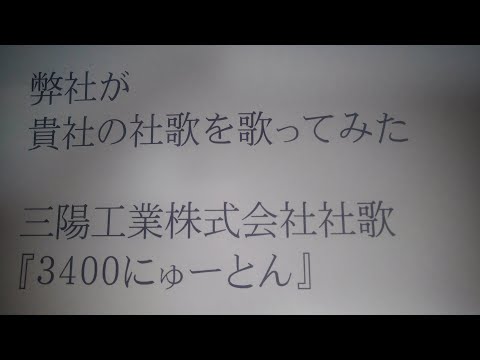 弊社が
貴社の社歌を歌ってみた
三陽工業株式会社社歌
『3400にゅーとん』